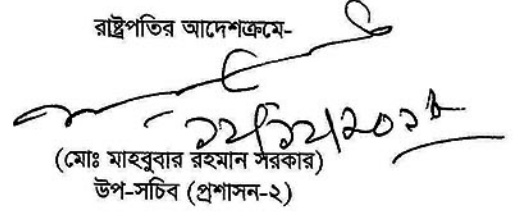 রাষ্ট্রপতির আদেশক্রমে-
১২/১২/২০১৮
(মোঃ মাহবুবার রহমান সরকার)
উপ-সচিব (প্রশাসন-২)